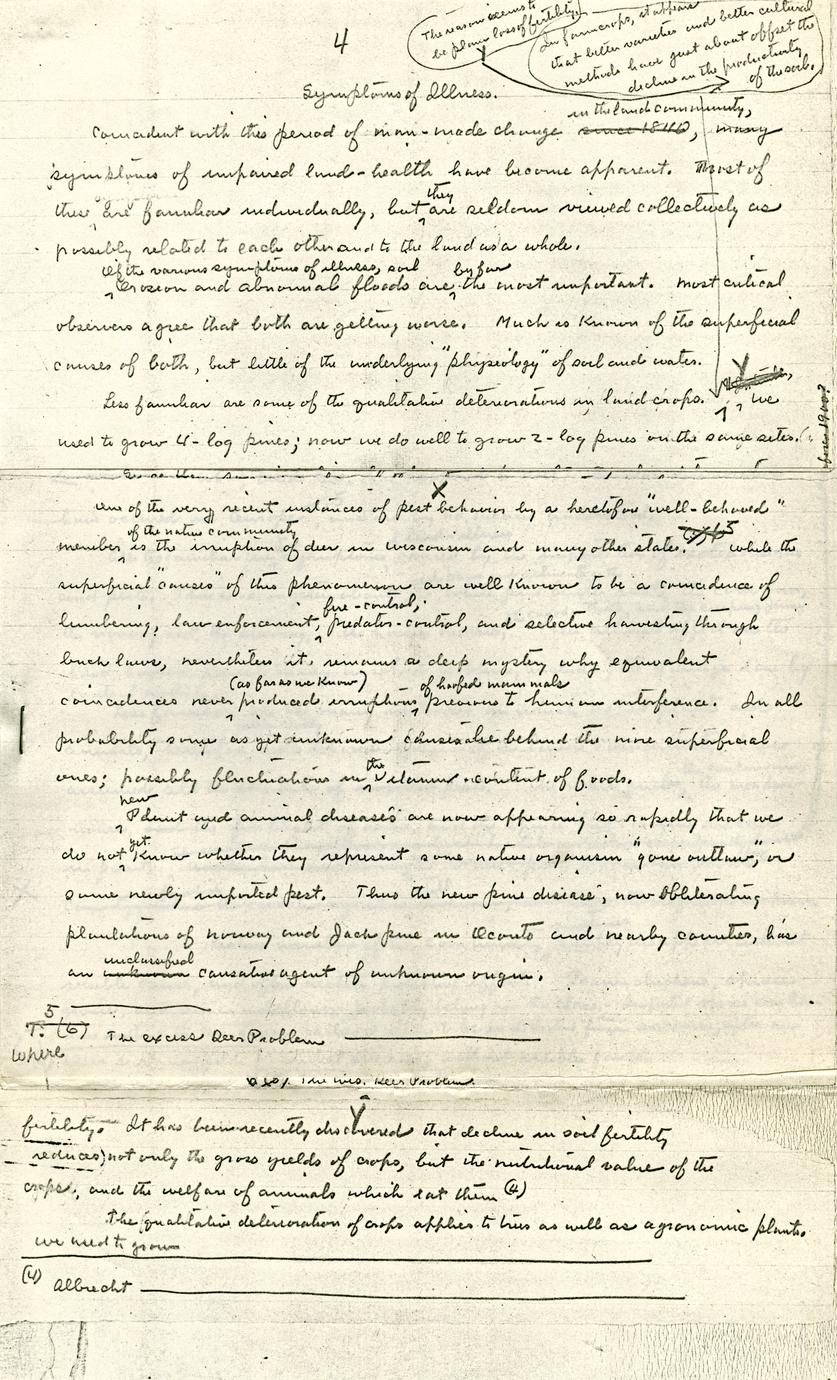 4
The reason seems to
be plain loss of fertility.
In farm crops, it appears
that better varieties and better cultural
methods have just about offset the
decline in the productivity
of the soil.
Symptoms of Illness.
in the land community,
Coincident with this period of man-made change since 1840, many
symptoms of impaired land-health have become apparent. Most of
they
these are familiar individually, but are seldom viewed collectively as
possibly related to each other and to the land as a whole.
Of the various symptoms of illness, soil by far
Erosion and abnormal floods are the most important. Most critical
observers agree that both are getting worse. Much is known of the superficial
causes of both, but little of the underlying "physiology" of soil and water.
Y
Less familiar are some of the qualitative deteriorations in land crops. we
used to grow 4-log pines; now we do well to grow 2-log pines on the same sites.
X
One of the very recent instances of pest behavior by a heretofore "well-behaved"
of the native community
member is the irruption of deer in Wisconsin and many other states. while the
superficial "causes" of this phenomenon are well known to be a coincidence of
fire-control,
lumbering, law enforcement, predator-control, and selective harvesting through
buck laws, nevertheless it remains a deep mystery why equivalent
(as far as we know) of hoofed mammals
coincidences never produced irruptions previous to human interference. In all
probability some as yet unknown causes lie behind the more superficial
the
ones; possibly fluctuations in vitamin content of foods.
new
Plant and animal diseases are now appearing so rapidly that we
yet
do not know whether they represent some native organism "gone outlaw", or
some newly imported pest. Thus the new pine disease, now obliterating
plantations of Norway and Jack pine in Oconto and nearby counties, has
unclassified
an unknown causative agent of unknown origin.
5
(6) The excess Deer Problem
where
Y
fertility. It has been recently discovered that decline in soil fertility
reduces not only the gross yields of crops, but the nutritional value of the
crops, and the welfare of animals which eat them (4)
The qualitative deterioration of crops applies to trees as well as agronomic plants.
we used to grow
(4) Albrecht